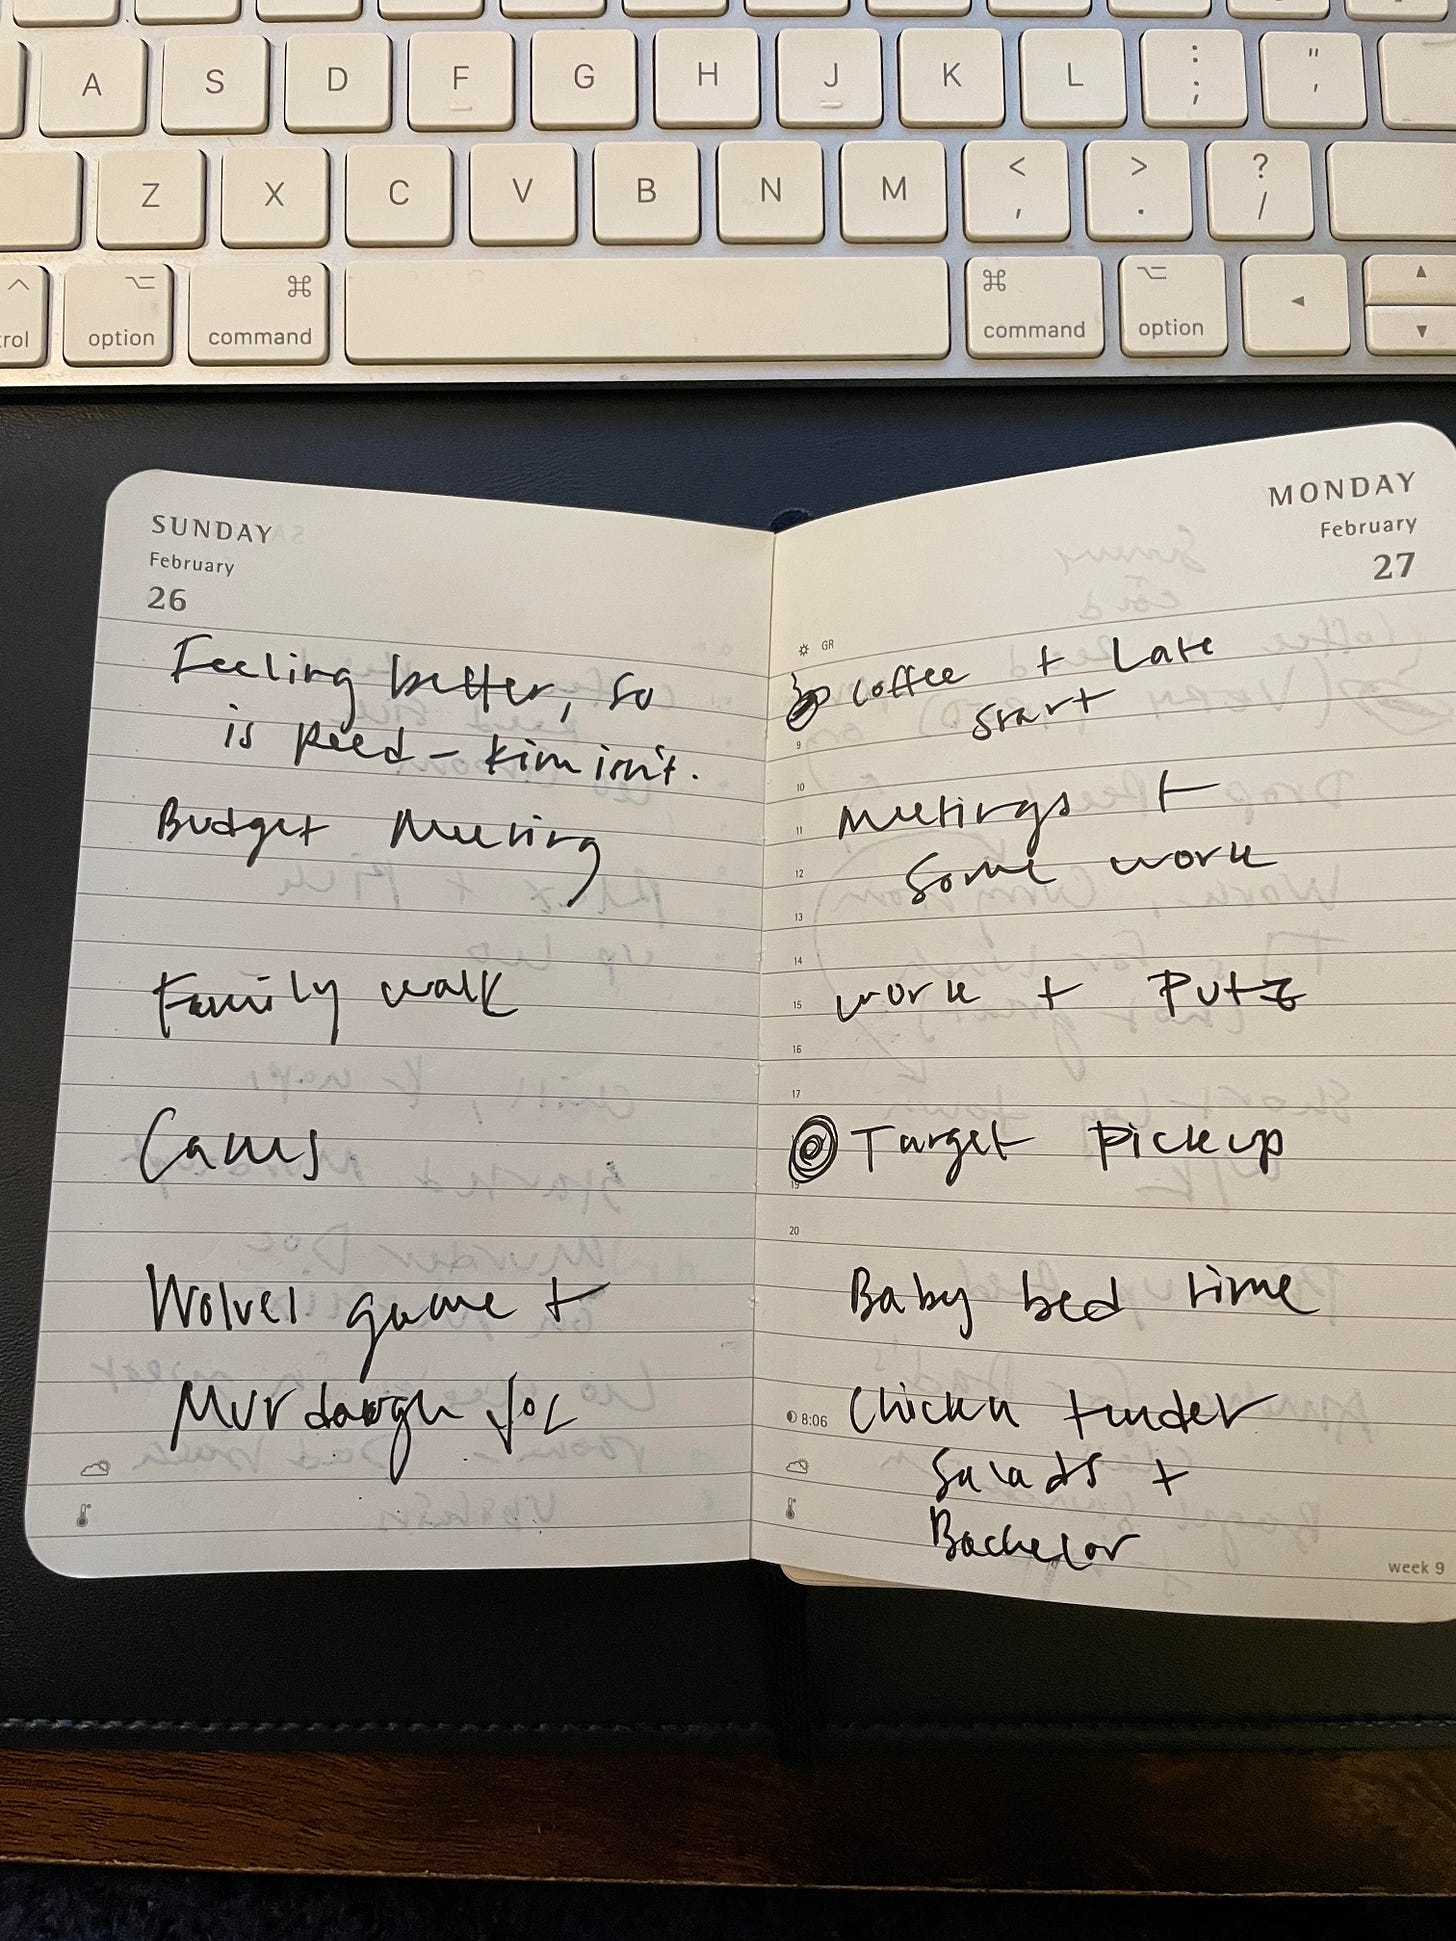 A S D F G H J K L : ; " '
Z X C V B N M < , > . ? /
option command command option
SUNDAY
February
26
Feeling better, so
is Reed – Kim isn't.
Budget Meeting
Family walk
Calls
Wolves game +
Murdaugh doc
MONDAY
February
27
GR
Coffee + Late
Start
9
10
Meetings +
11
Some work
12
13
14
work + Putz
15
16
17
Target Pickup
19
20
Baby bed time
8:06
Chicken tender
Salads +
Bachelor
week 9